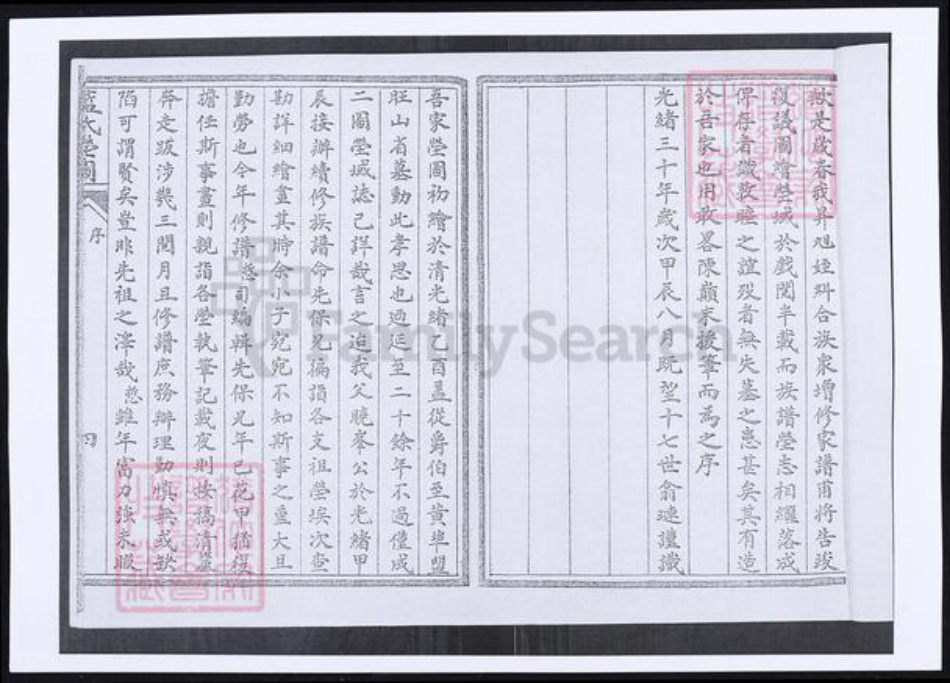 歟是歲春我昇旭姪糾合族衆增修家譜甫將告竣
復議圖繪塋域於戲閱半載而族譜塋志相繼落成
俾存者識敦睦之誼歿者無失墓之患甚矣其有造
於吾家也用敢畧陳巔末援筆而為之序
光緒三十年歲次甲辰八月既望十七世俞璉謹識
吾家塋圖初繪於清光緒乙酉盖從爵伯至黃埠塱
旺山省墓動此孝思也迺延至二十餘年不過僅成
二圖塋域誌已詳哉言之迨我父曉峯公於光緒甲
辰接辦續修族譜命先保兄徧詣各支祖塋挨次查
勘詳細繪畫其時余小子宛宛不知斯事之重大且
勤勞也今年修譜慈司編輯先保兄年已花甲猶復
擔任斯事晝則親詣各塋執筆記載夜則按稿清
奔走跋涉幾三閱月且修譜庶務辦理勤慎無或缺
陷可謂賢矣豈非先祖之澤哉慈雖年富力強未暇
藍氏塋圖
序
四
FamilySearch